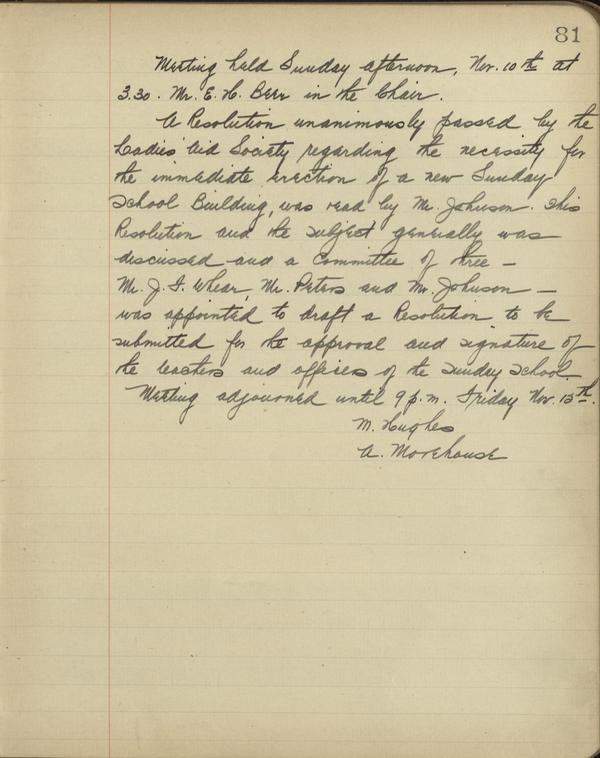 81
Meeting held Sunday afternoon, Nov. 10th at
3.30. Mr. E. H. Beer in the Chair.
A Resolution unanimously passed by the
Ladies' Aid Society regarding the necessity for
the immediate erection of a new Sunday
School Building, was read by Mr. Johnson. This
Resolution and the subject generally was
discussed and a Committee of three —
Mr. J. F. Whear, Mr. Peters and Mr. Johnson —
was appointed to draft a Resolution to be
submitted for the approval and signature of
the teachers and officers of the Sunday School.
Meeting adjourned until 9 p.m. Friday Nov. 15th.
M. Hughes
A. Morehouse